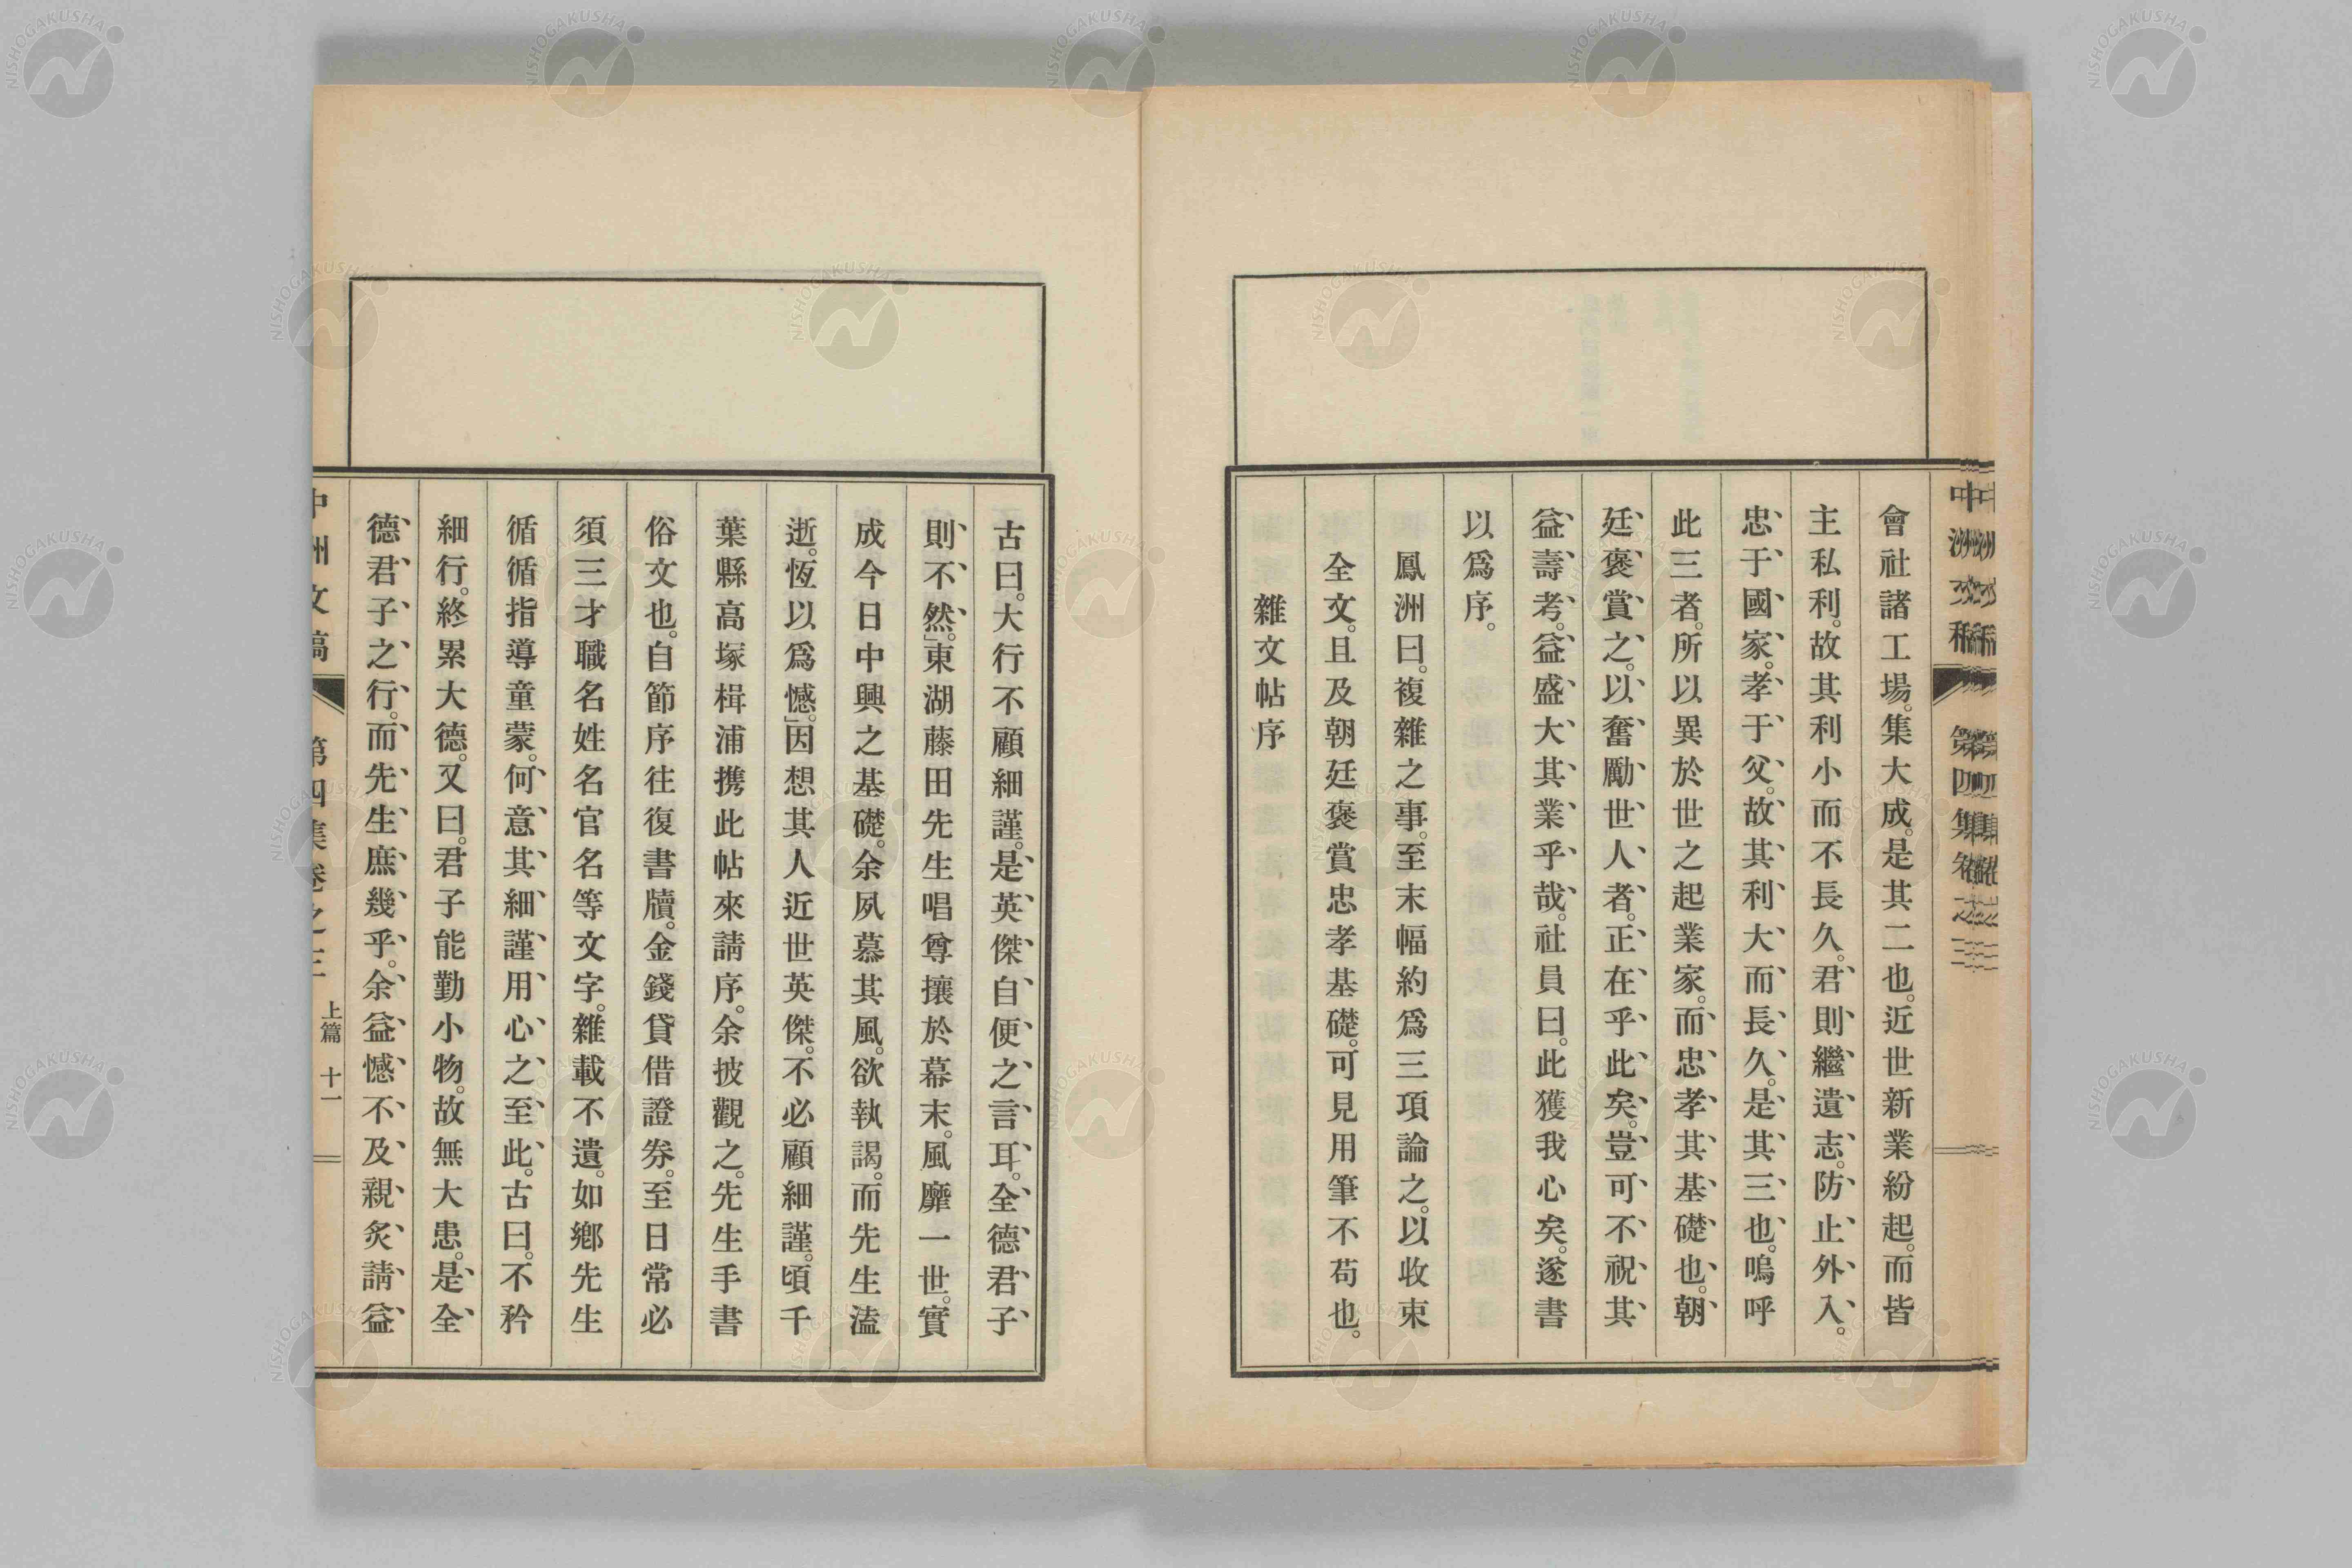 會社諸工場。集大成。是其二也。近世新業紛起。而皆
主私利。故其利小而不長久。君則繼遺志。防止外入。
忠于國家。孝于父。故其利大而長久。是其三也。嗚呼
此三者。所以異於世之起業家。而忠孝其基礎也。朝
廷褒賞之。以奮勵世人者。正在乎此矣。豈可不祝其
益壽考。益盛大其業乎哉。社員曰。此獲我心矣。遂書
以爲序。
鳳洲曰。複雜之事。至末幅約爲三項論之。以收束
全文。且及朝廷褒賞忠孝基礎。可見用筆不苟也。
雜文帖序
古曰。大行不顧細謹。是英傑自便之言耳。全德君子
則不然。」東湖藤田先生唱尊攘於幕末。風靡一世。實
成今日中興之基礎。余夙慕其風。欲執謁。而先生溘
逝。恆以爲憾。」因想其人近世英傑。不必顧細謹。頃千
葉縣高塚楫浦携此帖來請序。余披觀之。先生手書
俗文也。自節序往復書牘。金錢貸借證券。至日常必
須三才職名姓名官名等文字。雜載不遺。如鄕先生
循循指導童蒙。何意其細謹用心之至此。古曰。不矜
細行。終累大德。又曰。君子能勤小物。故無大患。是全
德君子之行。而先生庶幾乎。余益憾不及親炙請益
中洲文稿 第四集卷之三 上篇 十一
NISHOGAKUSHA